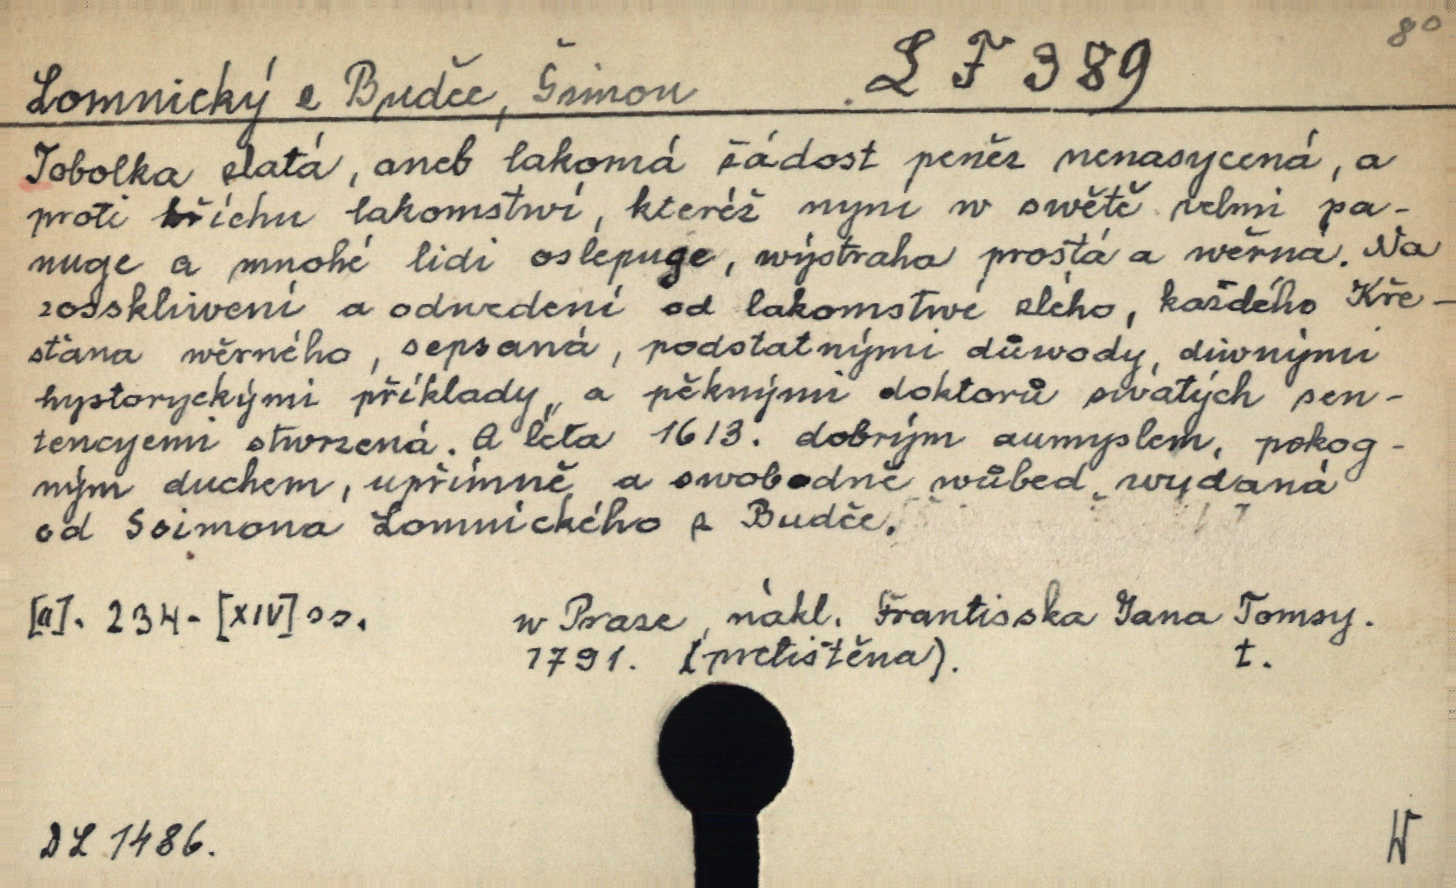 8°
Lomnický z Budče, Šimon L F 389
Tobolka zlatá, aneb lakomá žádost peněz nenasycená, a
proti hříchu lakomstwí, kteréž nyní w swětě velmi pa-
nuge a mnohé lidi oslepuge, wýstraha prostá a wěrná. Na
zosskliwení a odwedení od lakomstwí zlého, každého Kře-
sťana wěrného, sepsaná, podstatnými důwody, diwnými
hystoryckými příklady, a pěknými doktorů swatých sen-
tencyemi stwrzená. A léta 1613. dobrým aumyslem, pokog-
ným duchem, upřímně a swobodně wůbec wydaná
od Ssimona Lomnického z Budče.
[a]. 234-[XIV] ss. w Praze, nákl. Frantisska Jana Tomsy.
1791. (pretištěna). t.
DL 1486. W